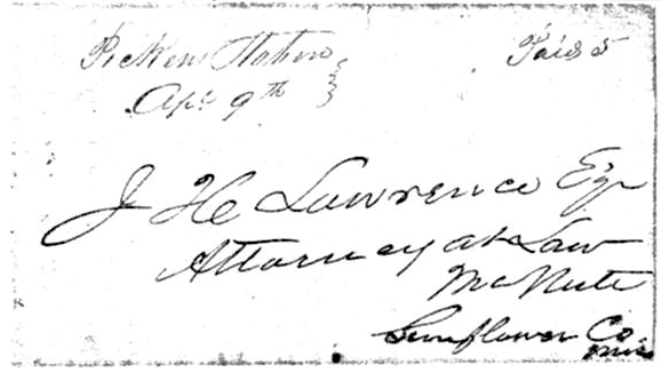 Pickens Station
Paid 5
Apl 9th
J H Lawrence Esq
Attorney at Law
McNutt
Sunflower Co
Miss